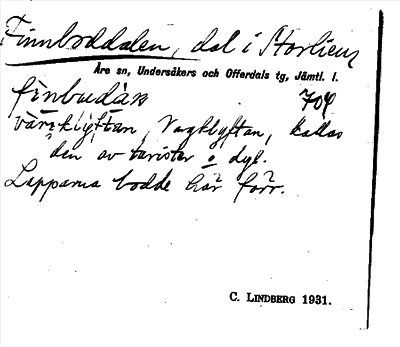 Finnboddalen, dal i Storliens
Åre sn, Undersåkers och Offerdals tg, Jämtl. l.
finbudàn 704
Vagklyftan, kallas
den av turister o dyl.
Lapparna bodde här förr.
C. LINDBERG 1931.